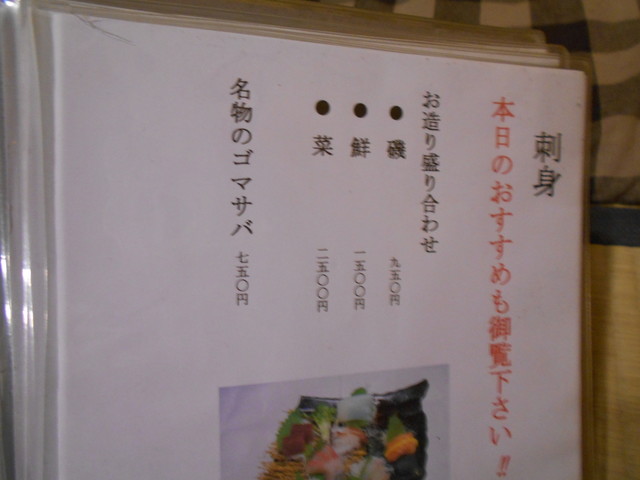 刺身
本日のおすすめも御覧下さい!!
お造り盛り合わせ
● 磯 九五〇円
● 鮮 一五〇〇円
● 菜 二五〇〇円
名物のゴマサバ 七五〇円